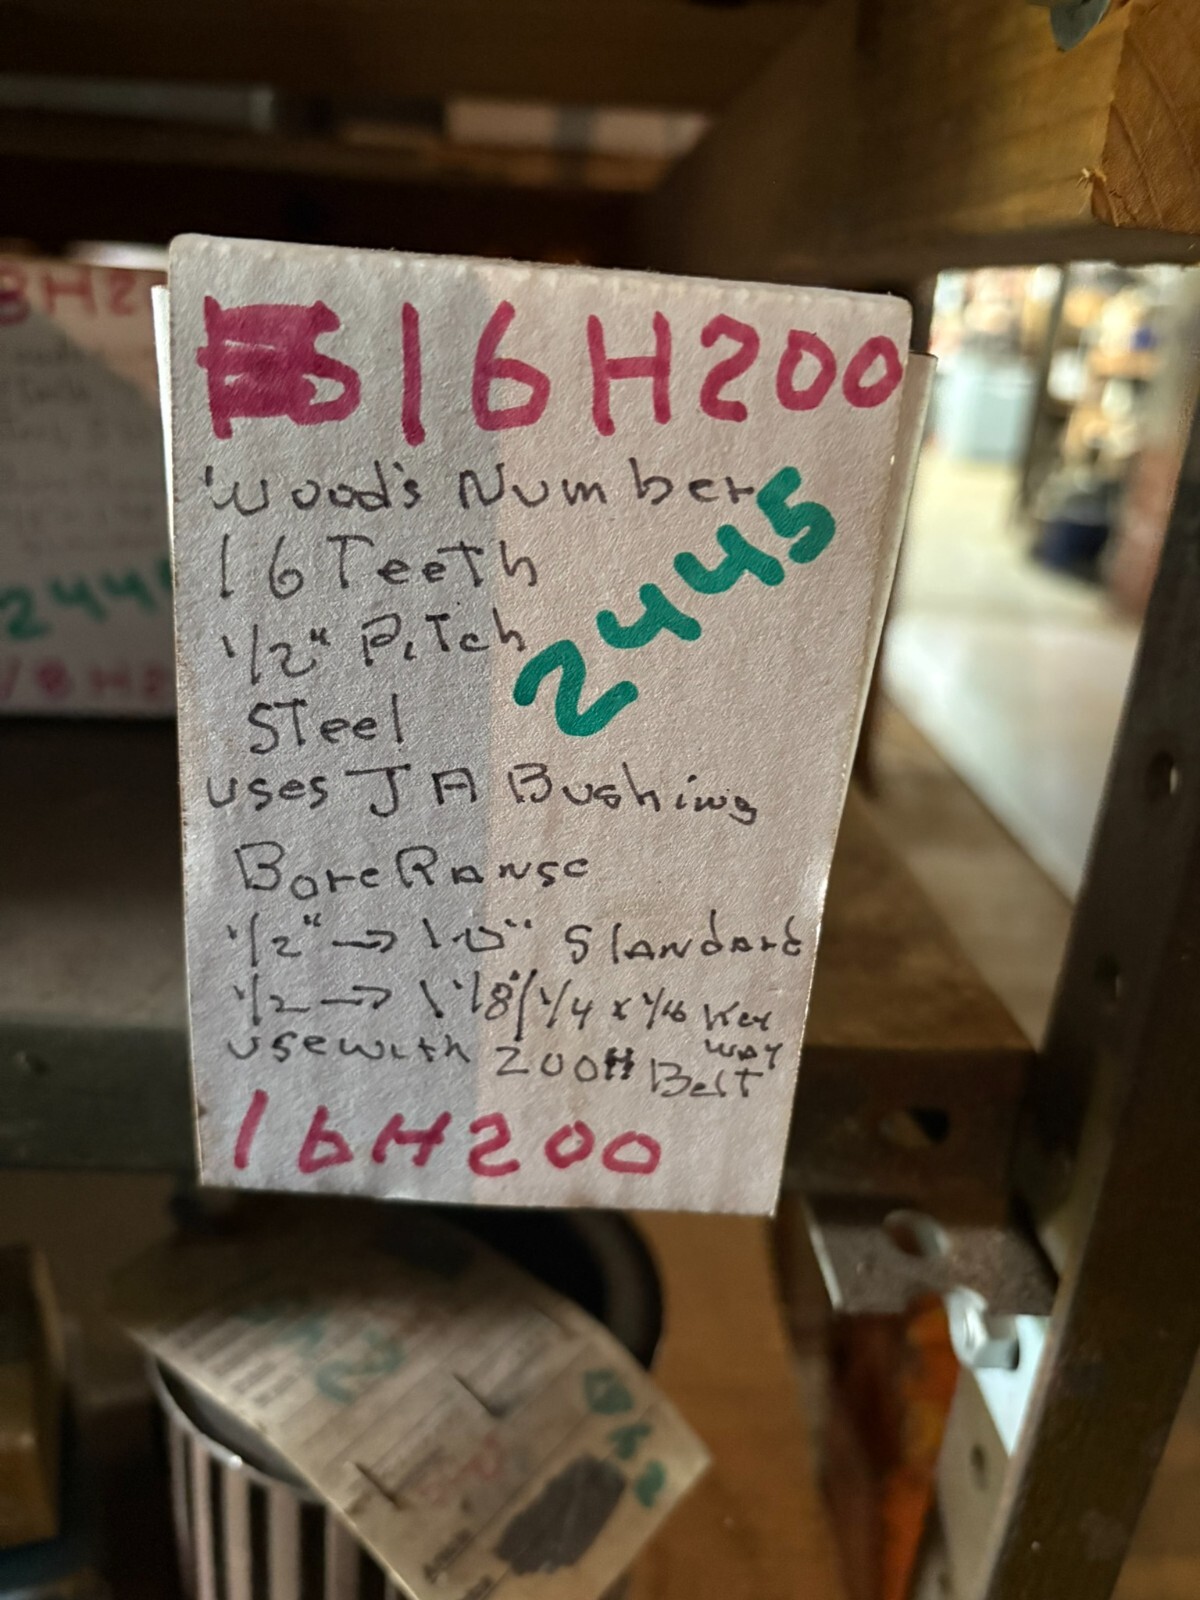 16H200
Wood's Number
2445
16 Teeth
1/2" Pitch
Steel
uses JA Bushing
Bore Range
1/2" → 1.0" Standard
1/2 → 1 1/8"/1/4 x 1/16 Key
way
use with 200H Belt
16H200
8H2
244
18H2